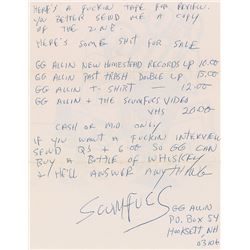 HERE'S A FUCKIN TAPE FOR REVIEW.
YOU BETTER SEND ME A COPY
OF THE ZINE.
HERE'S SOME SHIT FOR SALE
GG ALLIN NEW HOMESTEAD RECORDS LP 10.00
GG ALLIN PAST TRASH DOUBLE LP 15.00
GG ALLIN T-SHIRT — 12.00
GG ALLIN + THE SCUMFUCS VIDEO
VHS 20.00
CASH OR M.O ONLY
IF YOU WANT A FUCKIN INTERVIEW
SEND Q's + 6.00 SO GG CAN
BUY A BOTTLE OF WHISKEY
+ HE'LL ANSWER ANYTHING
SCUMFUCS
GG ALLIN
P.O. BOX 54
HOOKSETT, NH
03106